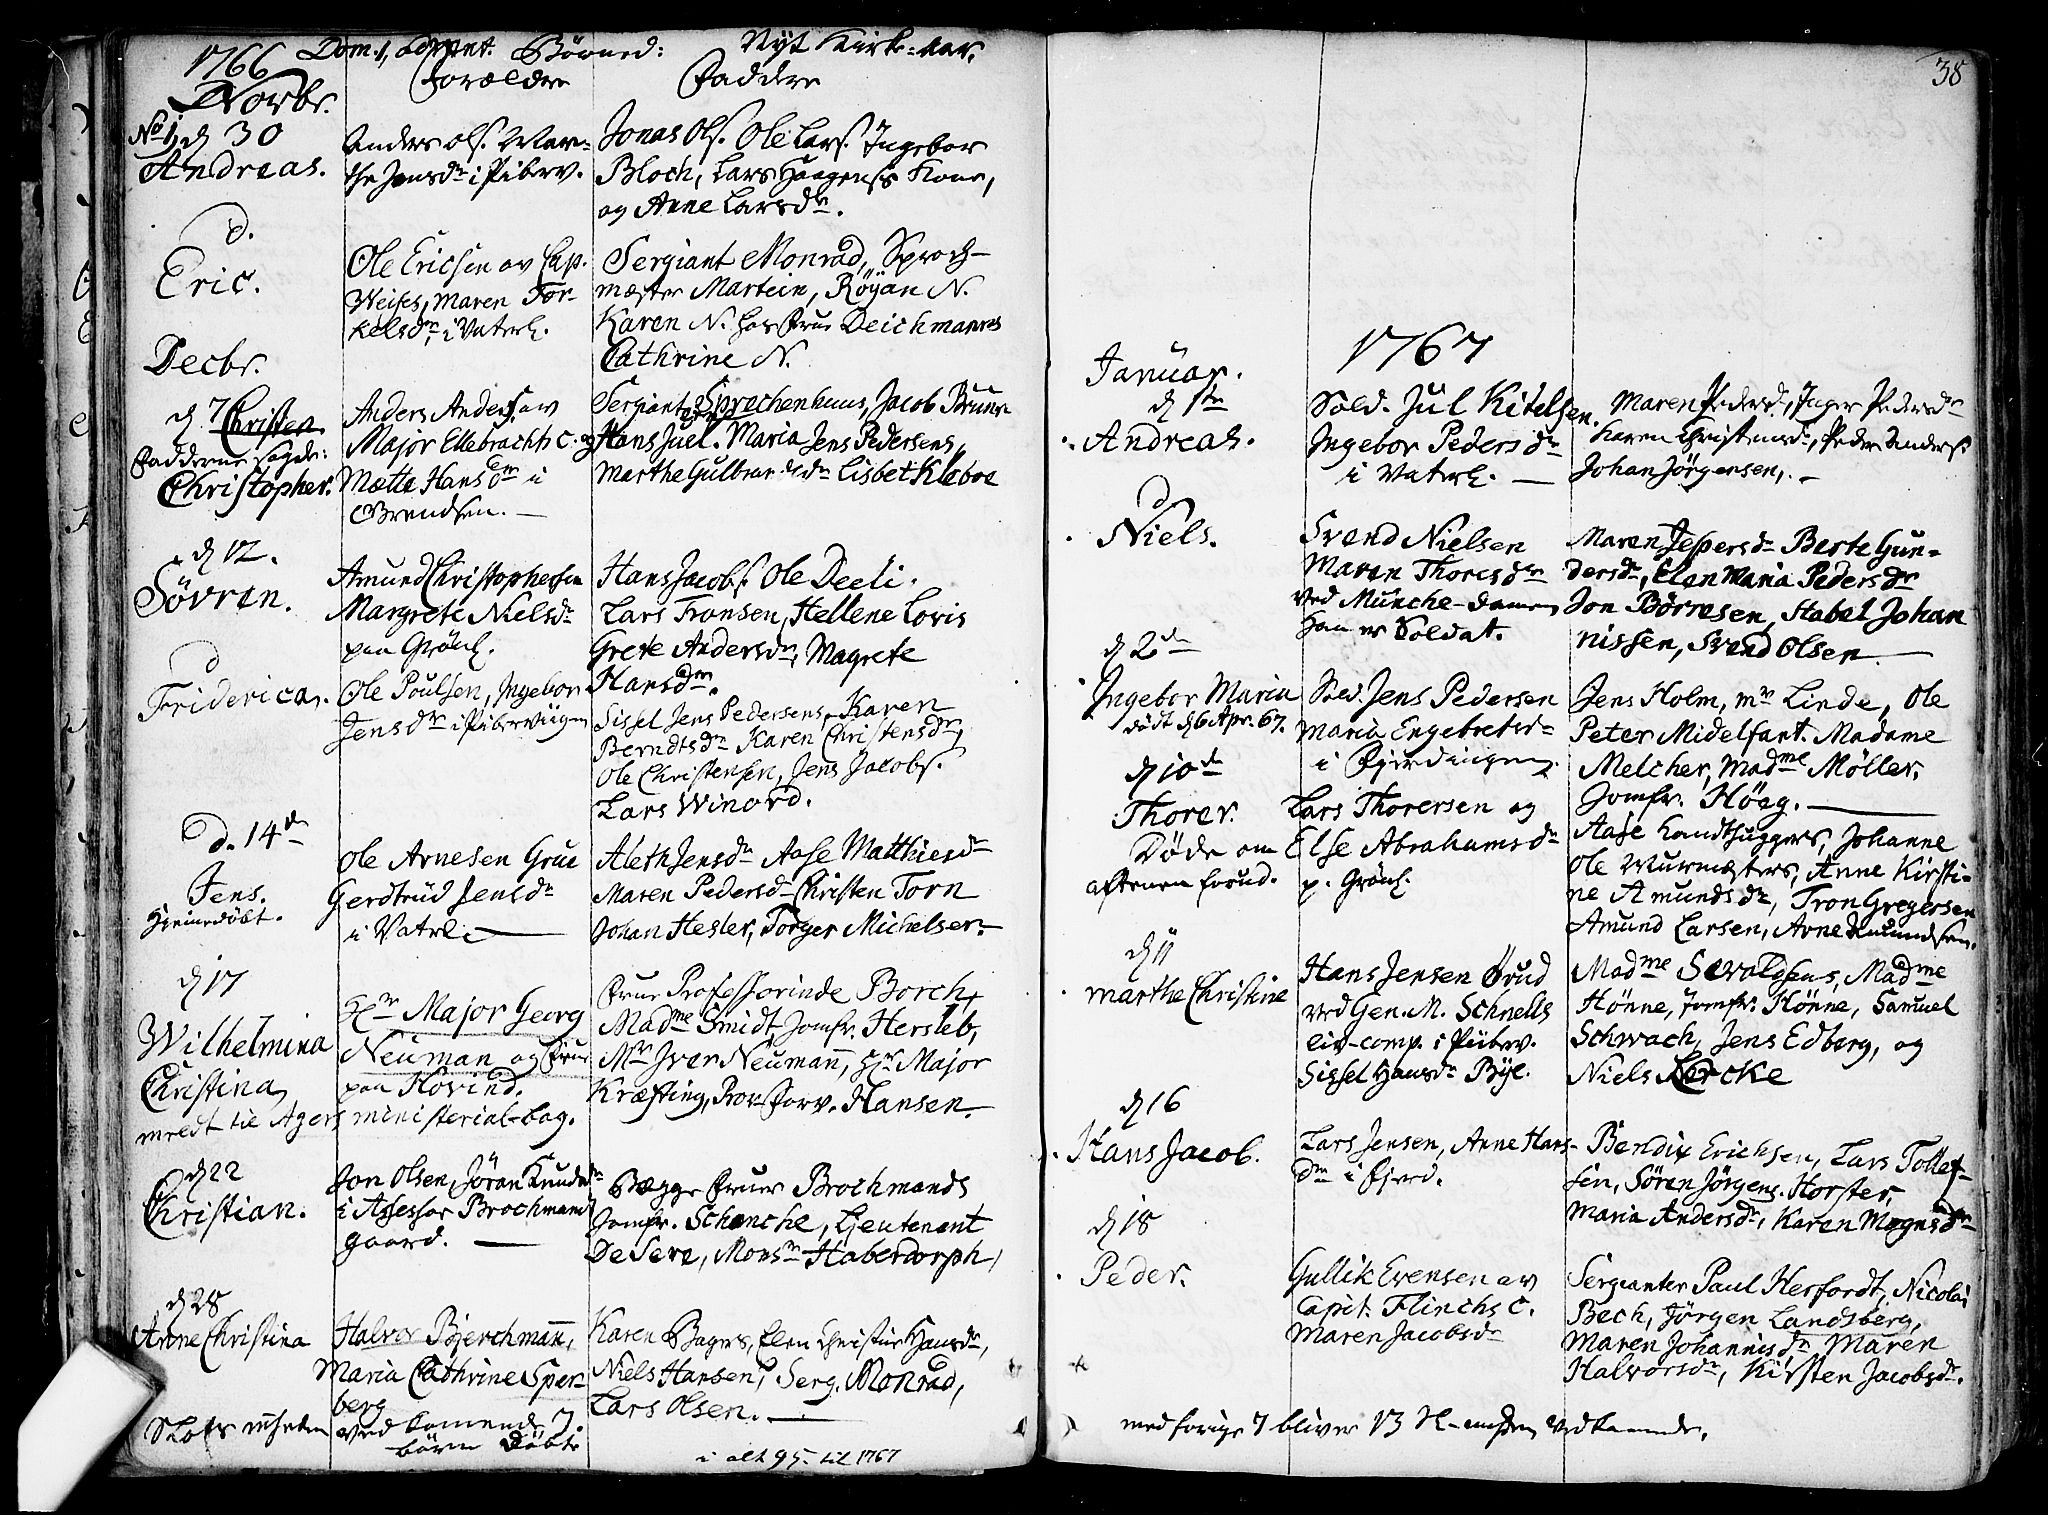 1766 Dom. 1, Advent. Børned: Nyt Kirke-aar.
Novbr. Forældre Faddere
No 1, d 30
Andreas.
Anders Ols. Mar-
the Jensdr i Piberv.
Jonas Ols. Ole Lars. Ingebor
Bloch, Lars Haagenss Kone,
og Anne Larsdr.
d.
Eric.
Ole Ericsen av Cap.
Weises, Maren Tor-
kelsdr, i Vaterl.
Sergiant Monrad, Sproch-
mæster Martein, Røyan N.
Karen N. hos Frue Deichmanns
Cathrine N.
Decbr.
d 7 Christen.
Fadderne sagde:
Christopher.
Anders Anders. av
Major Ellebrachts C. og
Mætte Hansdr i
Grendsen. —
Sergiant Sprechenhuus, Jacob Bruun
Hans Juel. Maria Jens Pedersens,
Marthe Gulbrandsdr Lisbet Kleboe
d 12.
Søvren.
Amund Christophersen
Margrete Nielsdr
paa Grønl.
Hans Jacobs. Ole Deeli.
Lars Fransen, Hellene Lovis
Grete Andersdr, Magrete
Hansdr.
d
Friderica.
Ole Poulsen, Ingebor
Jensdr i Piberviigen
Sissel Jens Pedersens, Karen
Berndtsdr Karen Christensdr,
Ole Christensen, Jens Jacobs.
Lars Winord.
d. 14de
Jens.
Hjemmedøbt.
Ole Arnesen Grue
Gerdtrud Jensdr
i Vatrl. —
Aleth Jensdr Aase Matthiesdr
Maren Pedersdr Christen Torn
Johan Hesler, Torger Michelsen
d 17
Wilhelmina
Christina,
Hr Major Georg
Neuman og Frue
paa Hovind.
Frue Professorinde Borch,
Madme Smidt Jomfr. Hersleb,
Mr Iver Neumann, Hr Major
Kræfting, Pro. Forv. Hansen.
meldt til Agers ministerial-bog.
d 22
Christian.
Jon Olsen, Jøran Knudsdr
i Assessor Brochmands
gaard. —
Begge Fruer Brochmands
Jomfr. Schenche, Lieutenant
De Sere, Monsr Haberdorph,
d 28
Anne Christina
Halvor Bjerchmann,
Maria Cathrine Sper-
berg
Karen Bagers, Elen Christin Hansdr,
Niels Hansen, Serg. Monrad,
Lars Olsen. —
Slots meheden vedkomende 7.
børn døbte
i alt 95 til 1767
38
1767
Januar.
d 1ste
Andreas.
Sold. Jul Kitelsen.
Ingebor Pedersdr
i Vaterl. —
Maren Pedersd, Inger Pedersdr
Karen Christensd, Peder Anders.
Johan Jørgensen, —
d
Niels.
Svend Nielsen
Maren Thoresdr
ved Munche-damen
han er Soldat.
Maren Jespersdr Berte Gun-
dersdr, Elen Maria Pedersdr
Jon Børresen, Habel Johan
nissen, Svend Olsen —
d 2den
Ingebor Maria
dødt d 6 Apr. 67.
Sold. Jens Pedersen
Maria Engebretsd-
i Fjerdingen.
Jens Holm, Mr Linde, Ole
Peter Midelfart. Madame
Melcher, Madme Møller,
Jomfr. Høeg. —
d 10de
Thorer.
Døde om
aftenen forud.
Lars Thorersen og
Else Abrahamsdr
p. Grønl.
Aase Landthuggers, Johanne
Ole Murmæsters, Anne Kirsti-
ne Amundsdr, Tron Gregersen
Amund Larsen, Arne Amundsen.
d 11
Marthe Christine
Hans Jensen Ørud
ved Gen. M. Schnells
Liv-comp. i Piberv.
Sissel Hansdr Bye.
Madme Sevaldsens, Madme
Hønne, Jomfr. Hønne, Samuel
Schwach, Jens Edberg, og
Niels Lercke
d 16
Hans Jacob.
Lars Jensen, Anne Hans-
dr i Fjerd.
Bendix Erichsen, Lars Tollef-
sen, Søren Jørgens. Horster,
Maria Andersdr, Karen Mognsdr
d 18
Peder.
Gullik Evensen av
Capit. Flinchs C.
Maren Jacobsdr
Sergianter Paul Herfordt, Nicolai
Bech, Jørgen Landsberg,
Maren Johannisdr Maren
Halvorsdr, Kirsten Jacobsdr.
med forige 7 bliver 13 vedkomende.